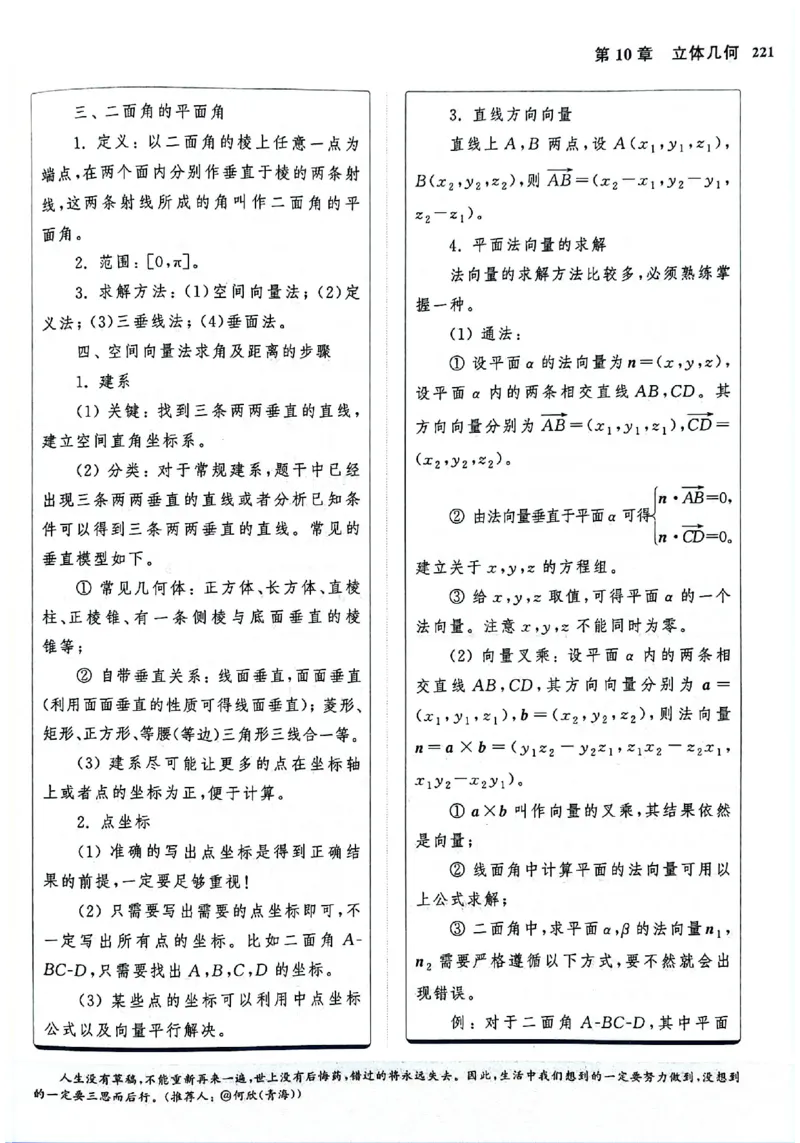 第10章 立体几何 221
三、二面角的平面角
1. 定义:以二面角的棱上任意一点为
端点,在两个面内分别作垂直于棱的两条射
线,这两条射线所成的角叫作二面角的平
面角。
2. 范围:[0,π]。
3. 求解方法:(1)空间向量法;(2)定
义法;(3)三垂线法;(4)垂面法。
四、空间向量法求角及距离的步骤
1. 建系
(1) 关键:找到三条两两垂直的直线,
建立空间直角坐标系。
(2) 分类:对于常规建系,题干中已经
出现三条两两垂直的直线或者分析已知条
件可以得到三条两两垂直的直线。常见的
垂直模型如下。
① 常见几何体:正方体、长方体、直棱
柱、正棱锥、有一条侧棱与底面垂直的棱
锥等;
② 自带垂直关系:线面垂直,面面垂直
(利用面面垂直的性质可得线面垂直);菱形、
矩形、正方形、等腰(等边)三角形三线合一等。
(3) 建系尽可能让更多的点在坐标轴
上或者点的坐标为正,便于计算。
2. 点坐标
(1) 准确的写出点坐标是得到正确结
果的前提,一定要足够重视!
(2) 只需要写出需要的点坐标即可,不
一定写出所有点的坐标。比如二面角 A-
BC-D,只需要找出 A,B,C,D 的坐标。
(3) 某些点的坐标可以利用中点坐标
公式以及向量平行解决。
3. 直线方向向量
直线上 A,B 两点,设 A(x₁,y₁,z₁),
B(x₂,y₂,z₂),则 AB→=(x₂-x₁,y₂-y₁,
z₂-z₁)。
4. 平面法向量的求解
法向量的求解方法比较多,必须熟练掌
握一种。
(1) 通法:
① 设平面 α 的法向量为 n=(x,y,z),
设平面 α 内的两条相交直线 AB,CD。其
方向向量分别为 AB→=(x₁,y₁,z₁),CD→=
(x₂,y₂,z₂)。
② 由法向量垂直于平面 α 可得{n·AB→=0,
n·CD→=0。
建立关于 x,y,z 的方程组。
③ 给 x,y,z 取值,可得平面 α 的一个
法向量。注意 x,y,z 不能同时为零。
(2) 向量叉乘:设平面 α 内的两条相
交直线 AB,CD,其方向向量分别为 a=
(x₁,y₁,z₁),b=(x₂,y₂,z₂),则法向量
n=a×b=(y₁z₂-y₂z₁,z₁x₂-z₂x₁,
x₁y₂-x₂y₁)。
① a×b 叫作向量的叉乘,其结果依然
是向量;
② 线面角中计算平面的法向量可用以
上公式求解;
③ 二面角中,求平面 α,β 的法向量 n₁,
n₂ 需要严格遵循以下方式,要不然就会出
现错误。
例:对于二面角 A-BC-D,其中平面
人生没有草稿,不能重新再来一遍,世上没有后悔药,错过的将永远失去。因此,生活中我们想到的一定要努力做到,没想到
的一定要三思而后行。(推荐人:@何欣(青海))